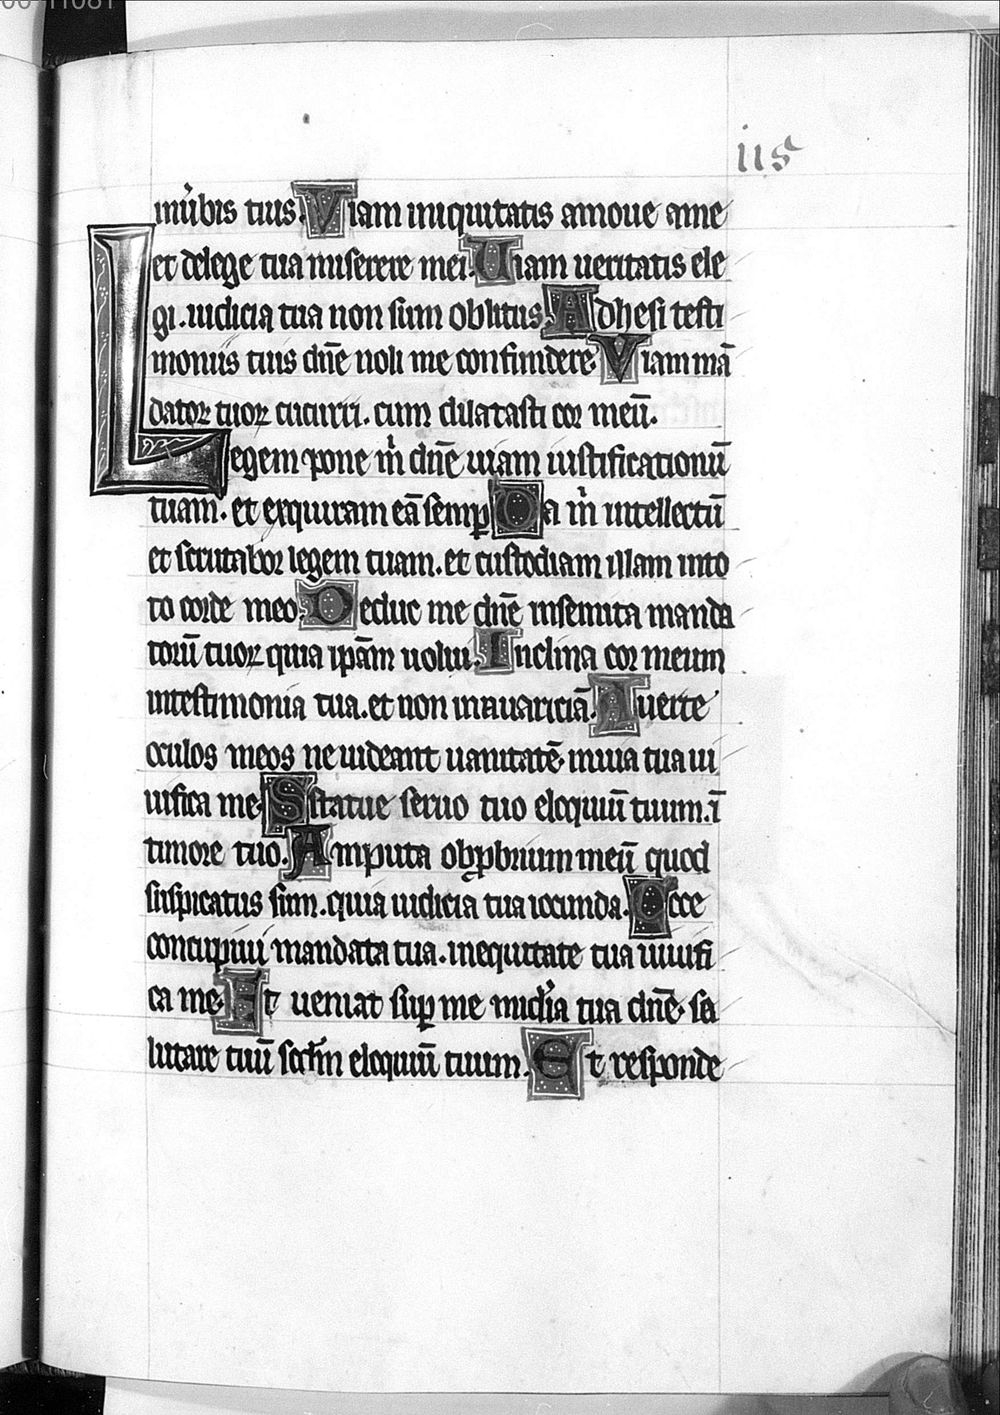 115
in ũbis tuis. Viam iniquitatis amoue ame
et delege tua miserere mei. Uiam ueritatis ele
gi. iudicia tua non sum oblitus. Adhesi testi
moniis tuis dñe noli me confundere. Viam mã
datoꝝ tuoꝝ cucurri. cum dilatasti cor meũ.
Legem pone m̃ dñe uiam iustificationũ
tuam. et exquiram eã semꝑ Da m̃ intellectũ
et scrutabor legem tuam. et custodiam illam into
to corde meo. Deduc me dñe insemita manda
torũ tuoꝝ quia ipãm uolui. Inclina cor meum
intestimonia tua. et non inauariciã. Auerte
oculos meos ne uideant uanitatẽ. inuia tua ui
uifica me. Statue seruo tuo eloquiũ tuum. ĩ
timore tuo. Amputa obꝓbrium meũ quod
suspicatus sum. quia iudicia tua iocunda. Ecce
concupiui mandata tua. inequitate tua uiuifi
ca me. Et ueniat suꝑ me mia tua dñe. sa
lutare tuũ scđm eloquiũ tuum. Et responde